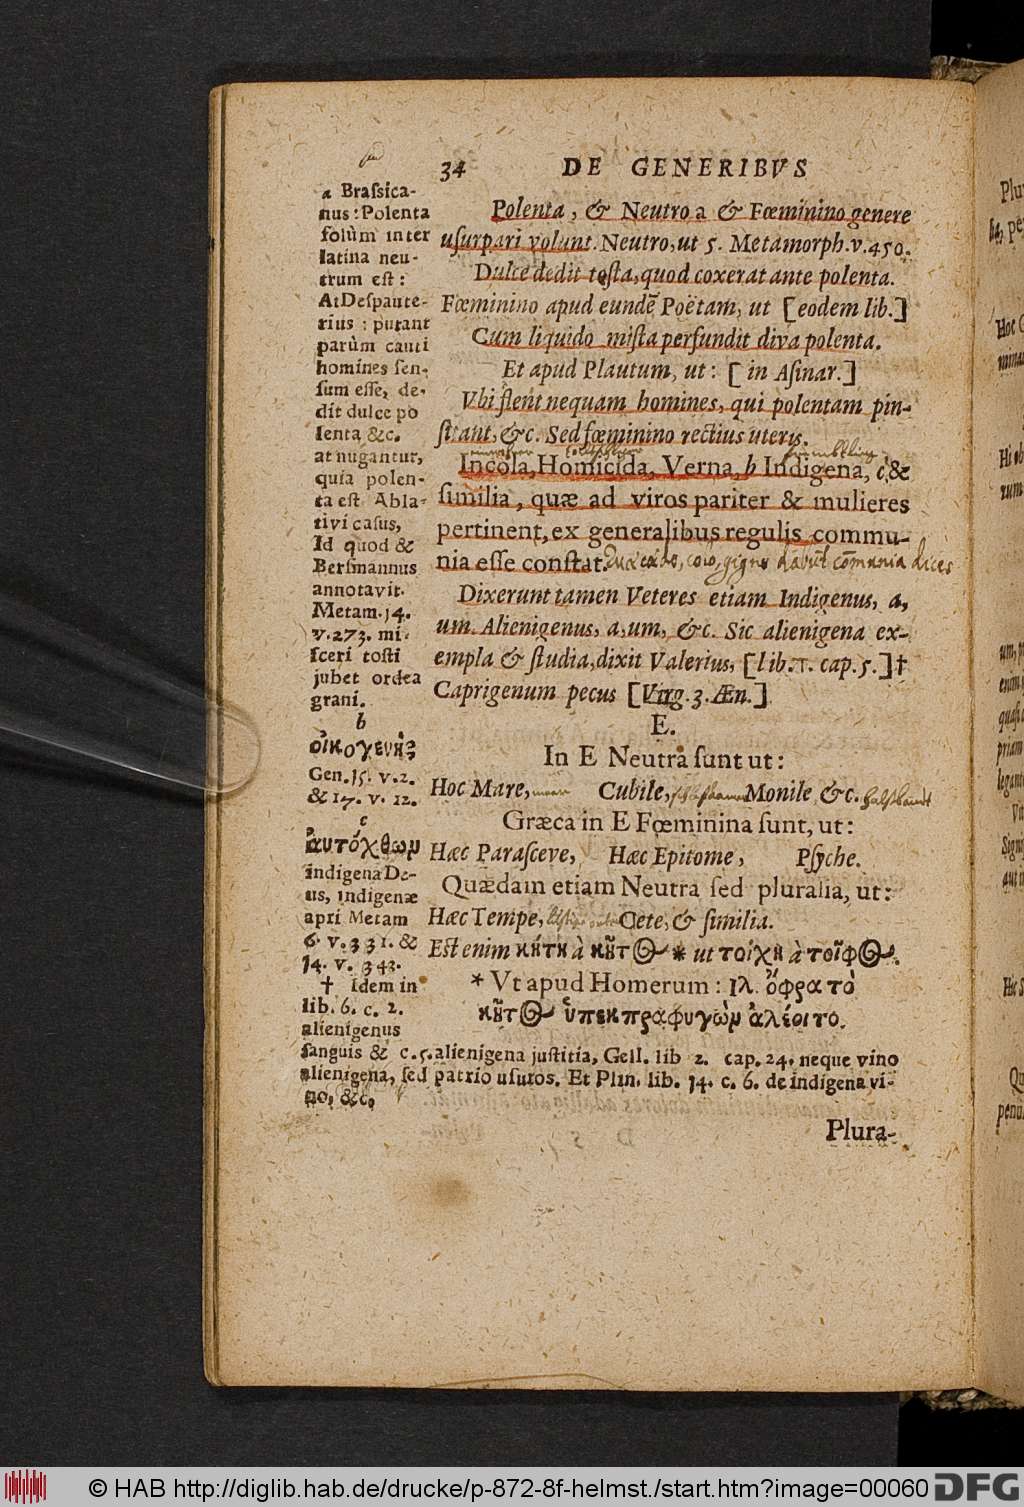 34 DE GENERIBVS
a Brassica-
nus: Polenta
solùm inter
latina neu-
trum est:
At Despaute-
rius: putant
parùm cauti
homines sen-
sum esse, de-
dit dulce po
lenta &c.
at nugantur,
quia polen-
ta est Abla-
tivi casus,
Id quod &
Bersmannus
annotavit.
Metam. 14.
v. 273. mi-
sceri tosti
jubet ordea
grani.
b
οἰκογενὴς
Gen. 15. v. 2.
& 17. v. 12.
c
αὐτόχθων
indigena De-
us, indigenæ
apri Metam
6. v. 331. &
14. v. 343.
† Idem in
lib. 6. c. 2.
alienigenus
sanguis & c. 5. alienigena justitia, Gell. lib 2. cap. 24. neque vino
alienigena, sed patrio usuros. Et Plin. lib. 14. c. 6. de indigena vi-
no, &c.
Polenta, & Neutro a & Fœminino genere
usurpari volunt. Neutro, ut 5. Metamorph. v. 450.
Dulce dedit tosta, quod coxerat ante polenta.
Fœminino apud eundẽ Poëtam, ut [eodem lib.]
Cum liquido mista perfundit diva polenta.
Et apud Plautum, ut: [in Asinar.]
Vbi flent nequam homines, qui polentam pin-
sitant, &c. Sed fœminino rectius uteris.
Incola, Homicida, Verna, b Indigena, c &
similia, quæ ad viros pariter & mulieres
pertinent, ex generalibus regulis commu-
nia esse constat. dices
Dixerunt tamen Veteres etiam Indigenus, a,
um. Alienigenus, a, um, &c. Sic alienigena ex-
empla & studia, dixit Valerius, [lib. 7. cap. 5.] †
Caprigenum pecus [Virg. 3. Æn.]
E.
In E Neutra sunt ut:
Hoc Mare, Cubile, Monile, &c.
Græca in E Fœminina sunt, ut:
Hæc Parasceve, Hæc Epitome, Psyche.
Quædam etiam Neutra sed pluralia, ut:
Hæc Tempe, Cete, & similia.
Est enim κήτη à κῆτος * ut τοίχη à τοῖχος.
* Vt apud Homerum: Ιλ. ὄφρα τὸ
κῆτος ὑπεκπραφυγὼν ἀλέοιτο.
Plura-
© HAB http://diglib.hab.de/drucke/p-872-8f-helmst./start.htm?image=00060 DFG